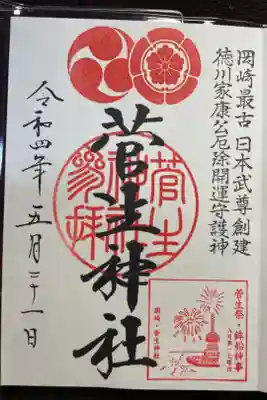 岡崎最古 日本武尊創建
徳川家康公厄除開運守護神
菅生神社
令和四年五月三十一日
菅生祭・鉾船神事
岡崎・菅生神社